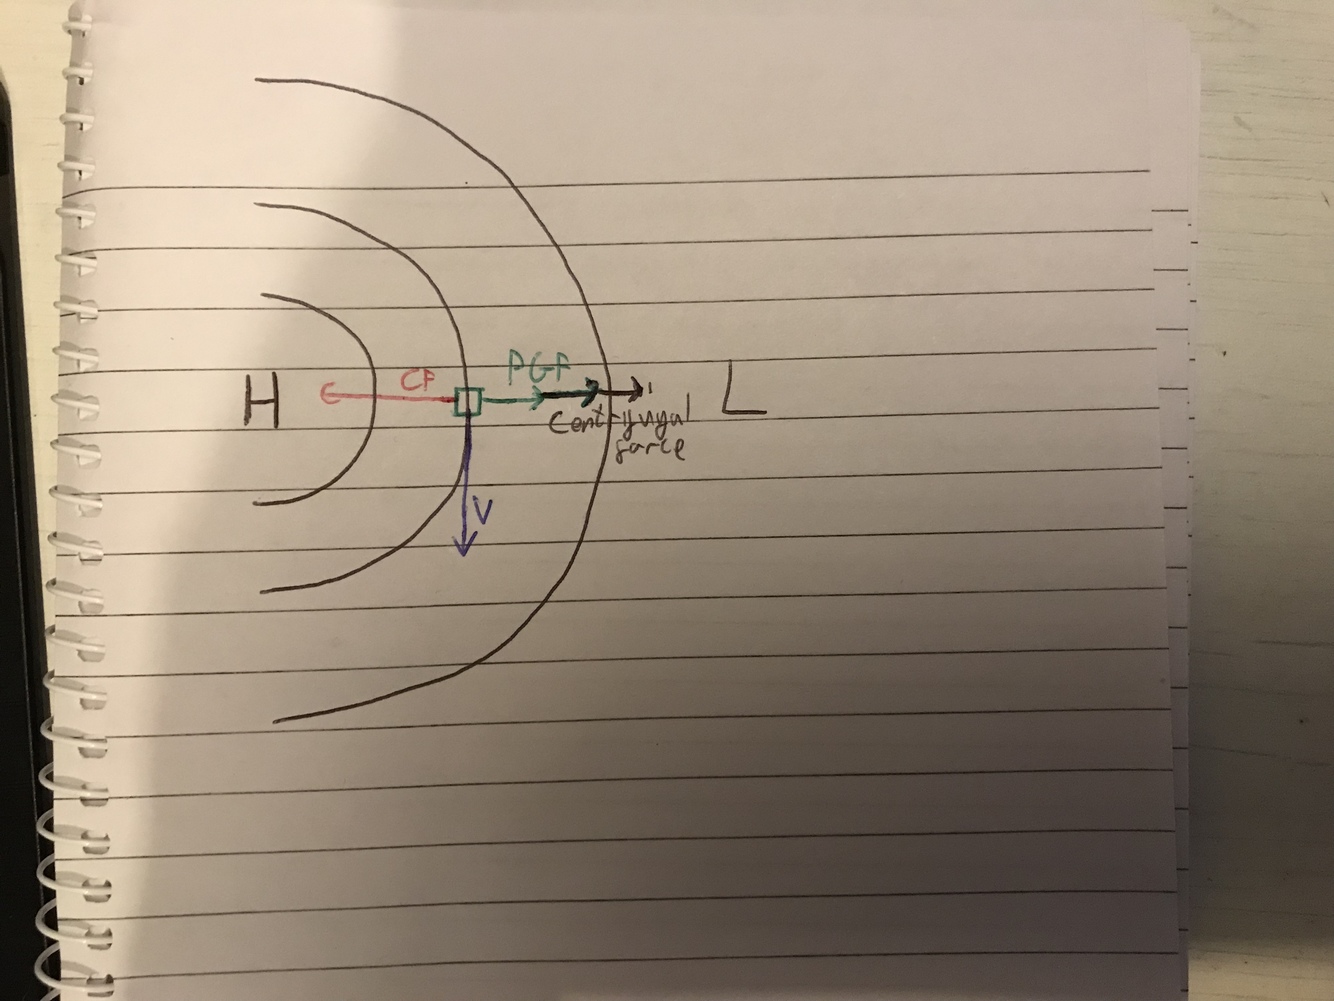 PGF
H
CF
L
Centrifugal
force
V